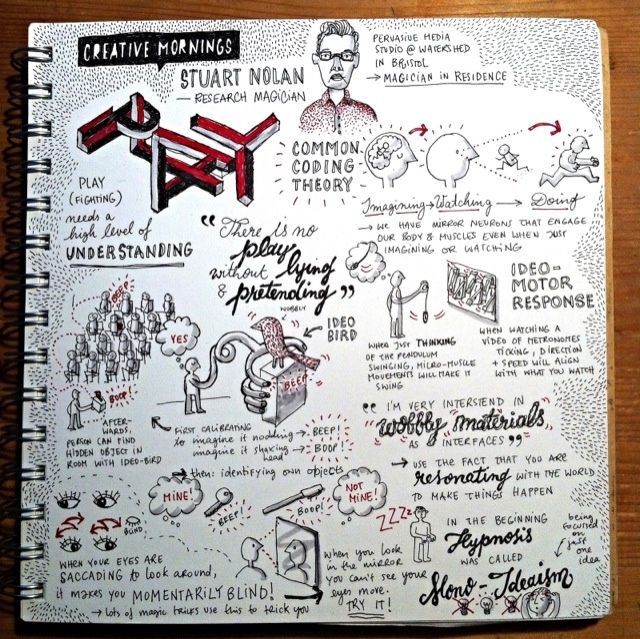 CREATIVE MORNINGS
STUART NOLAN
— RESEARCH MAGICIAN
PERVASIVE MEDIA
STUDIO @ WATERSHED
IN BRISTOL
→ MAGICIAN IN RESIDENCE
PLAY
PLAY
(FIGHTING)
needs a
high level of
UNDERSTANDING
COMMON
CODING
THEORY
Imagining → Watching → Doing
→ WE HAVE MIRROR NEURONS THAT ENGAGE
OUR BODY & MUSCLES EVEN WHEN JUST
IMAGINING OR WATCHING
“There is no
play
without lying
& pretending”
IDEO-
MOTOR
RESPONSE
WHEN JUST THINKING
OF THE PENDULUM
SWINGING, MICRO-MUSCLE
MOVEMENTS WILL MAKE IT
SWING
WHEN WATCHING A
VIDEO OF METRONOMES
TICKING, DIRECTION
+ SPEED WILL ALIGN
WITH WHAT YOU WATCH
BEEP
BOOP!
AFTER-
WARDS:
PERSON CAN FIND
HIDDEN OBJECT IN
ROOM WITH IDEO-BIRD
YES
WOBBLY
IDEO
BIRD
BEEP
FIRST CALIBRATING
to imagine it nodding → BEEP!
imagine it shaking → BOOP!
head
→ then: identifying own objects
MINE!
BEEP!
BOOP!
NOT
MINE!
“I'M VERY INTERSTEND IN
wobbly materials
AS INTERFACES”
→ USE THE FACT THAT YOU ARE
resonating WITH THE WORLD
TO MAKE THINGS HAPPEN
BLIND
WHEN YOUR EYES ARE
SACCADING to look around,
it makes you MOMENTARILY BLIND!
→ lots of magic tricks use this to trick you
when you look
in the mirror
you can't see your
eyes move.
TRY IT!
ZZZz
IN THE BEGINNING
Hypnosis
WAS CALLED
Mono-Ideaism
being
focused
on
just
one
idea